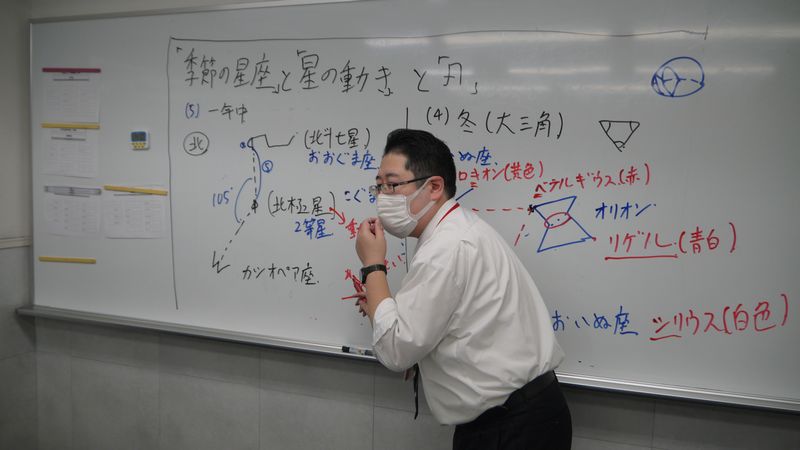 「季節の星座」と「星の動き」と「月」
(5) 一年中
北
(北斗七星)
おおぐま座
⑤
105°
(北極星)
こぐ
2等星
カシオペア座
(4) 冬 (大三角)
ぬ座
キオン(黄色)
ベテルギウス(赤)
オリオン
リゲル(青白)
おいぬ座
シリウス(白色)